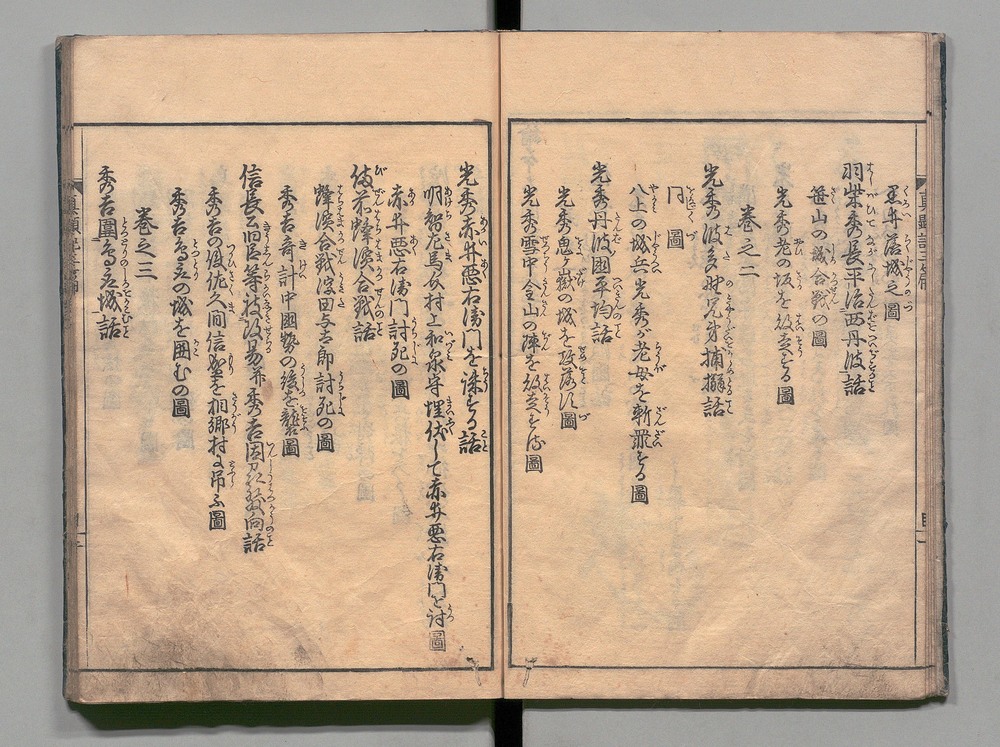 黒井落城之圖
羽柴秀長平治西丹波話
笹山の城合戦の圖
光秀老の坂を放火する圖
巻之二
光秀波多野兄弟捕擒話
同圖
八上の城兵光秀が老母を斬罪する圖
光秀丹波國平均話
光秀鬼ヶ嶽の城を攻落す圖
光秀雪中金山の陣を放火する圖
光秀赤井悪右衛門を誅する話
明智左馬助村上和泉守埋伏して赤井悪右衛門を討圖
赤井悪右衛門討死の圖
備前蜂濱合戦話
蜂濱合戦浮田与太郎討死の圖
秀吉奇計中國勢の後を襲圖
信長公旧臣等被改易并秀吉因州發向話
秀吉の臣佐久間信盛を相郷村に吊ふ圖
秀吉鳥取の城を囲むの圖
巻之三
秀吉圍鳥取城話